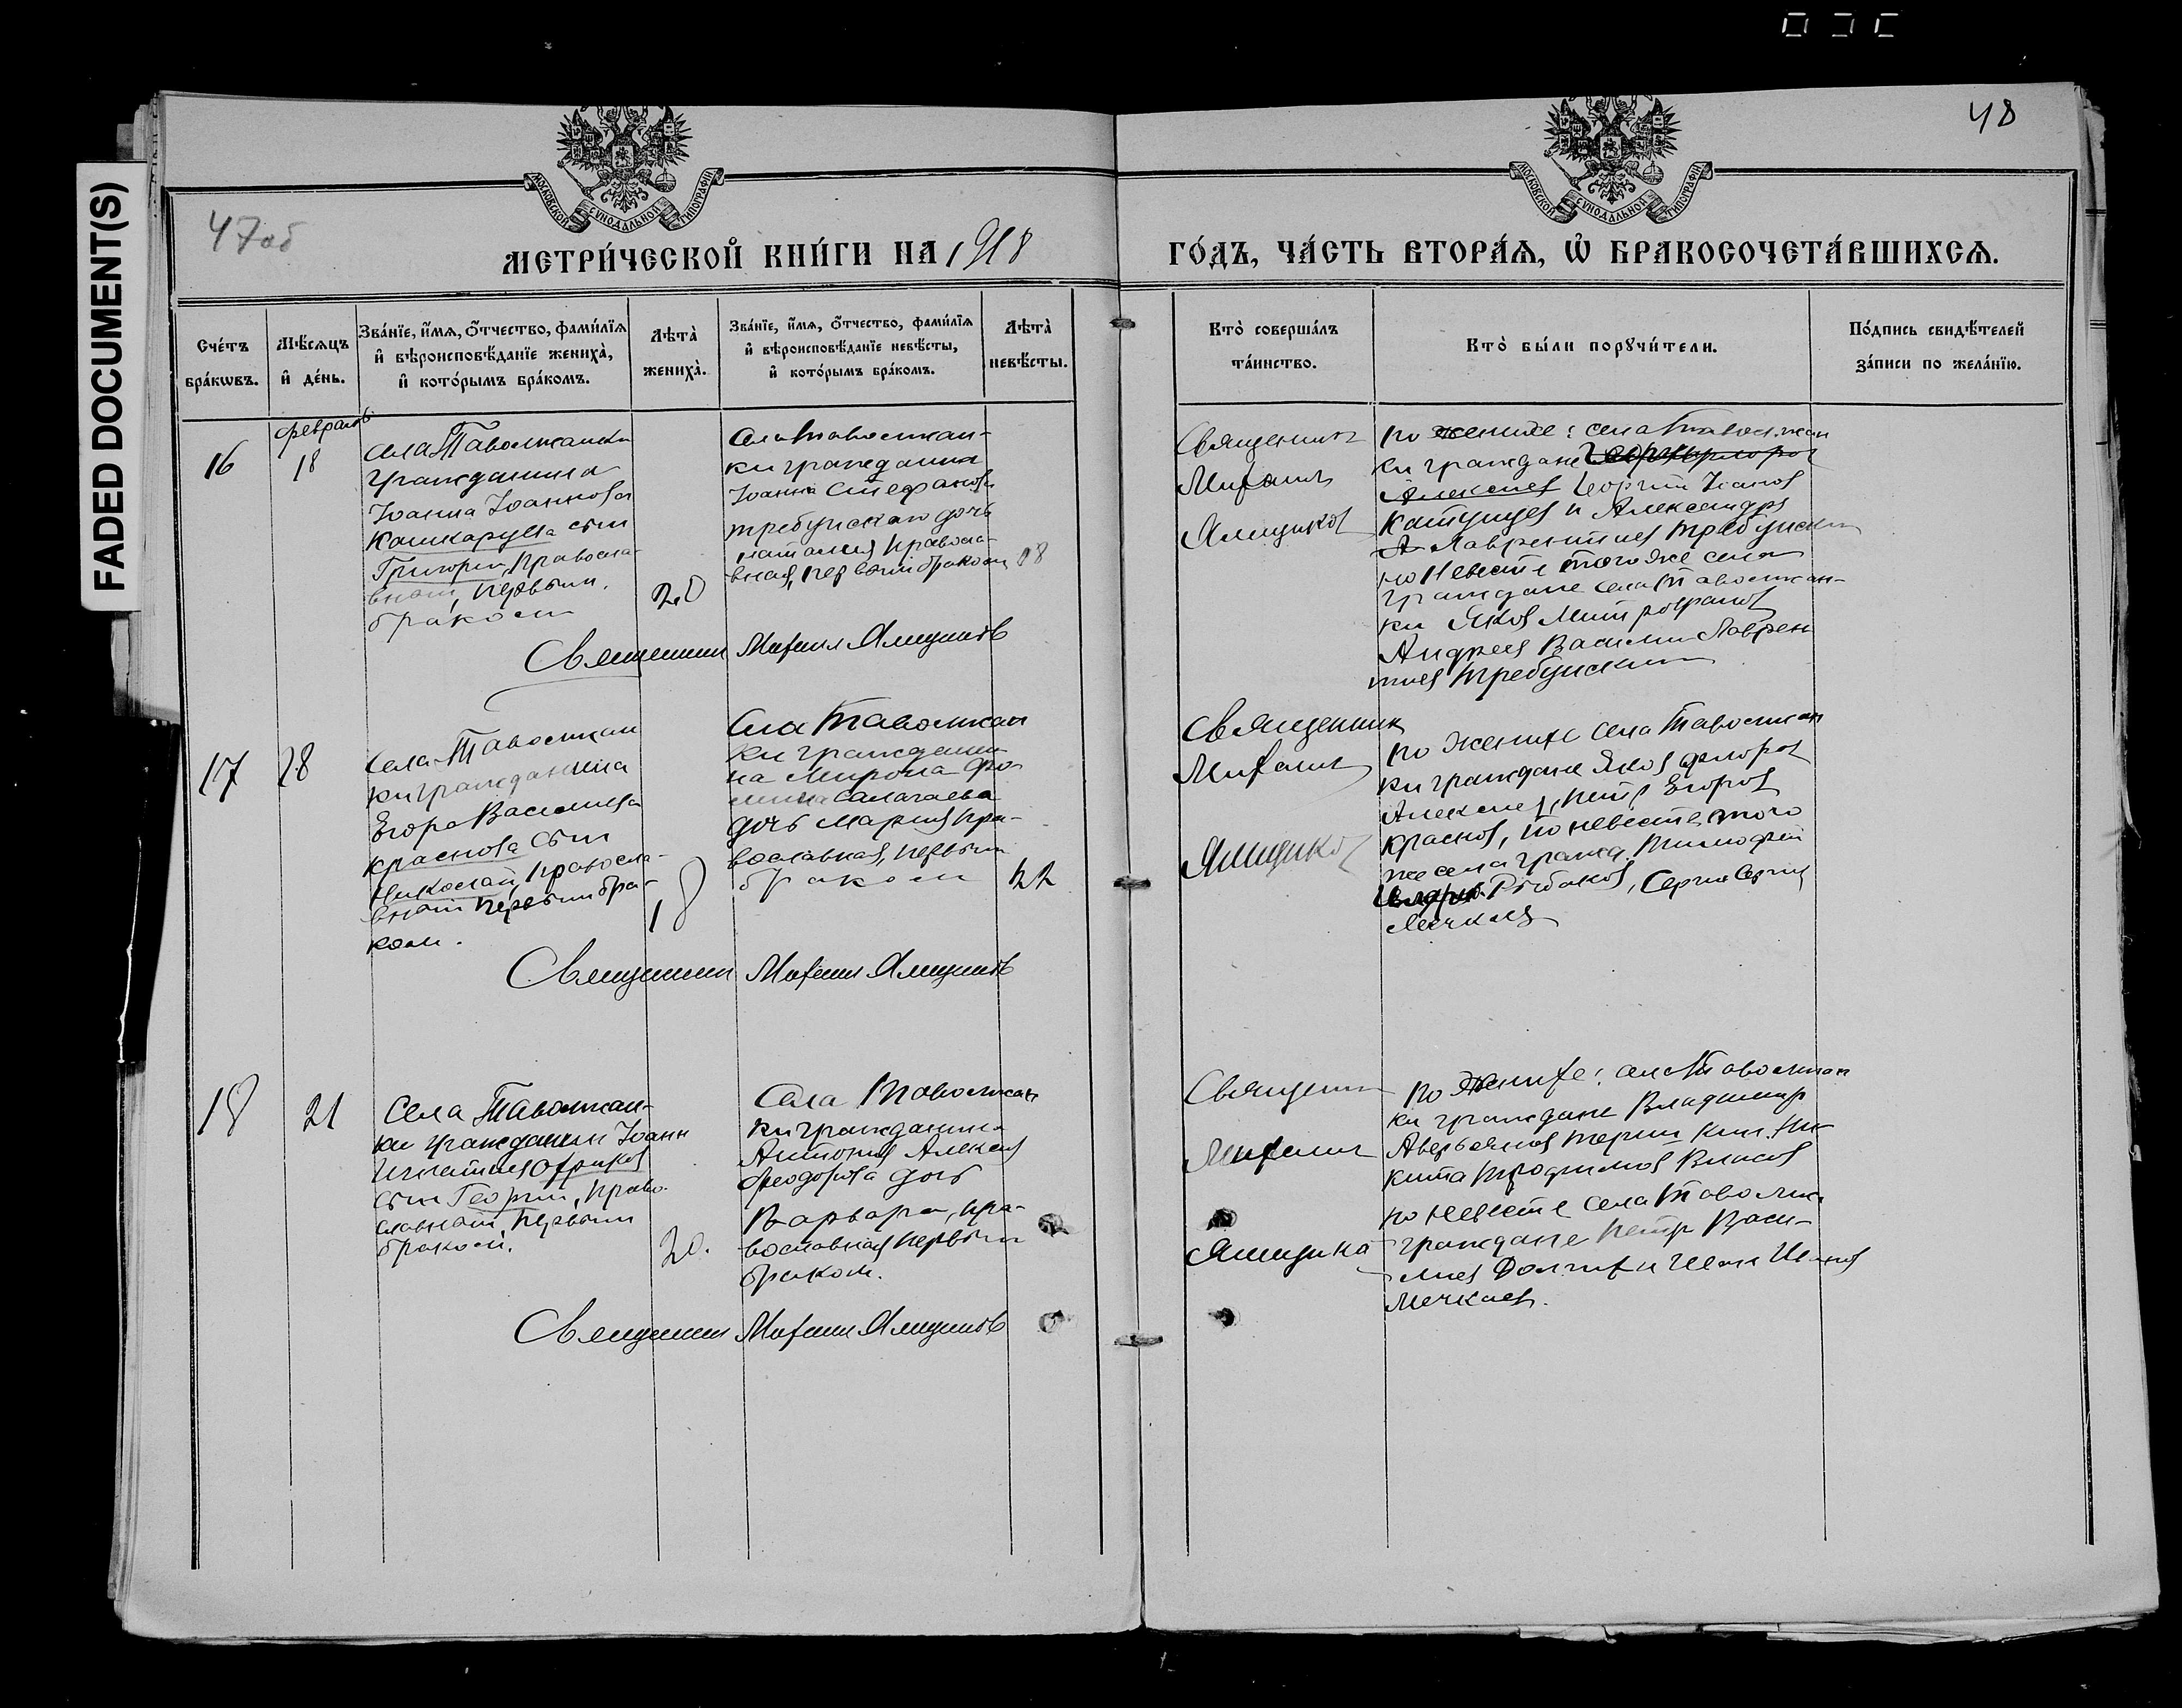 FADED DOCUMENT(S)
47об
48
МОСКОВСКОЙ СѴНОДАЛЬНОЙ ТИПОГРАФІИ
МОСКОВСКОЙ СѴНОДАЛЬНОЙ ТИПОГРАФІИ
МЕТРИ́ЧЕСКОЙ КНИ́ГИ НА 1918
ГО́ДЪ, ЧА́СТЬ ВТОРА́Ѧ, Ѡ҆ БРАКОСОЧЕТА́ВШИХСѦ.
Сче́тъ
бра́кѡвъ.
Мѣ́сѧцъ
и҆ де́нь.
Зва́нїе, и҆́мѧ, о҆́тчество, фами́лїѧ
и҆ вѣроисповѣ́данїе жениха̀,
и҆ кото́рымъ бра́комъ.
Лѣта̀
жениха̀.
Зва́нїе, и҆́мѧ, о҆́тчество, фами́лїѧ
и҆ вѣроисповѣ́данїе невѣ́сты,
и҆ кото́рымъ бра́комъ.
Лѣта̀
невѣ́сты.
Кто̀ соверша́лъ
та́инство.
Кто̀ бы́ли порꙋчи́тели.
По́дпись свидѣ́телей
за́писи по жела́нїю.
16
февраль
18
села Таволжанки
гражданина
Іоанна Іоаннова
Кашкарула сын
Григорий, правосла-
вный, первым
браком
20
Села Таволжан-
ки гражданина
Іоанна Стефанова
Требунскаго дочь
Наталия правосла-
вная, первым браком
18
Священник Михаил Ямщиков
Священник
Михаил
Ямщиков
по жениже: села Таволжан
ки граждане
Алексеев Георгий Іоанов
и Александр
Лаврентиев Требунский
по Невесте того же села
граждане села Таволжан-
ки Яков Митрофанов
Андреев Василий Лаврен
тиев Требунский
17
18
села Таволжан
ки гражданина
Егора Василиева
Краснова сын
Николай, правосла-
вный первым бра-
ком.
18
Села Таволжан
ки граждани-
на Мирона Фо-
мина
дочь Мария пра-
вославная, первым
браком
22
Священник Михаил Ямщиков
Священник
Михаил
Ямщиков
по жениже села Таволжан
ки граждане Яков Флоров
Алексеев, Петр Егоров
Краснов, по невесте того
же села гражд. Тимофей
Рыбаков, Сергий Сергиев
18
21
Села Таволжан-
ки гражданин Іоанн
Игнатиев
сын Георгий, право-
славный, первым
браком.
20.
Села Таволжан
ки гражданина
Алексея
Феодорова дочь
Варвара, пра-
вославная первым
браком.
Священник Михаил Ямщиков
Священник
Михаил
Ямщико
по жениже: села Таволжан
ки граждане Владимир
Аверьянов Ни-
кита Трофимов Власов
по Невесте села Таволж.
граждане Петр Васи-
лиев Долгих и Иван Иванов